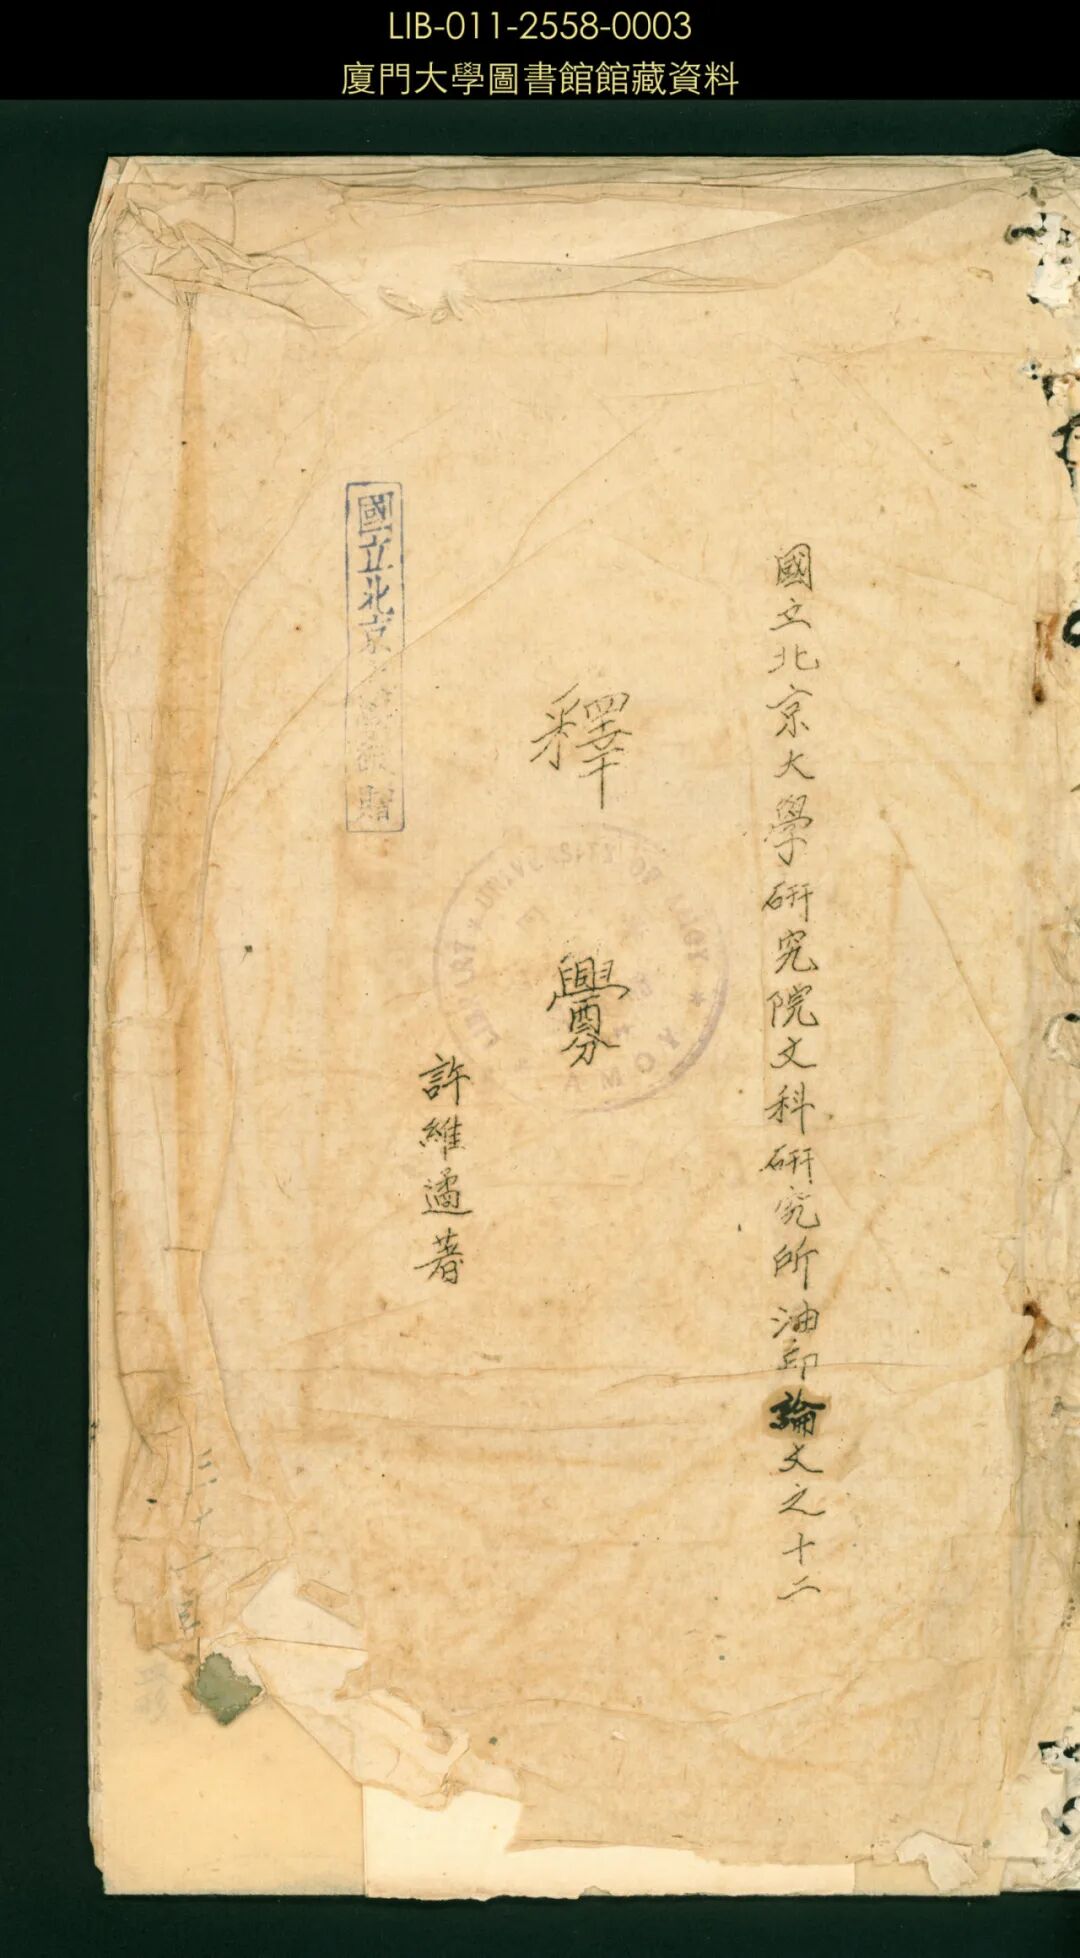 LIB-011-2558-0003
廈門大學圖書館館藏資料
國立北京大學研究院文科研究所油印論文之十二
釋釁
許維遹著
國立北京 贈
LIBRARY * UNIVERSITY OF AMOY *
AMOY
三十一年